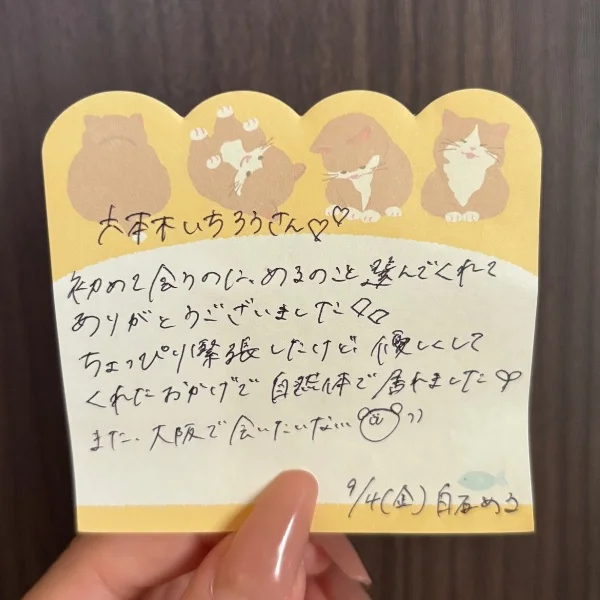 六本木いちろうさん♡♡
初めて会うのに、めるのこと選んでくれて
ありがとうございました♡♡
ちょっぴり緊張したけど、優しくして
くれたおかげで自然体で居れました♡
また、大阪で会いたいな
9/4(金) 白石める